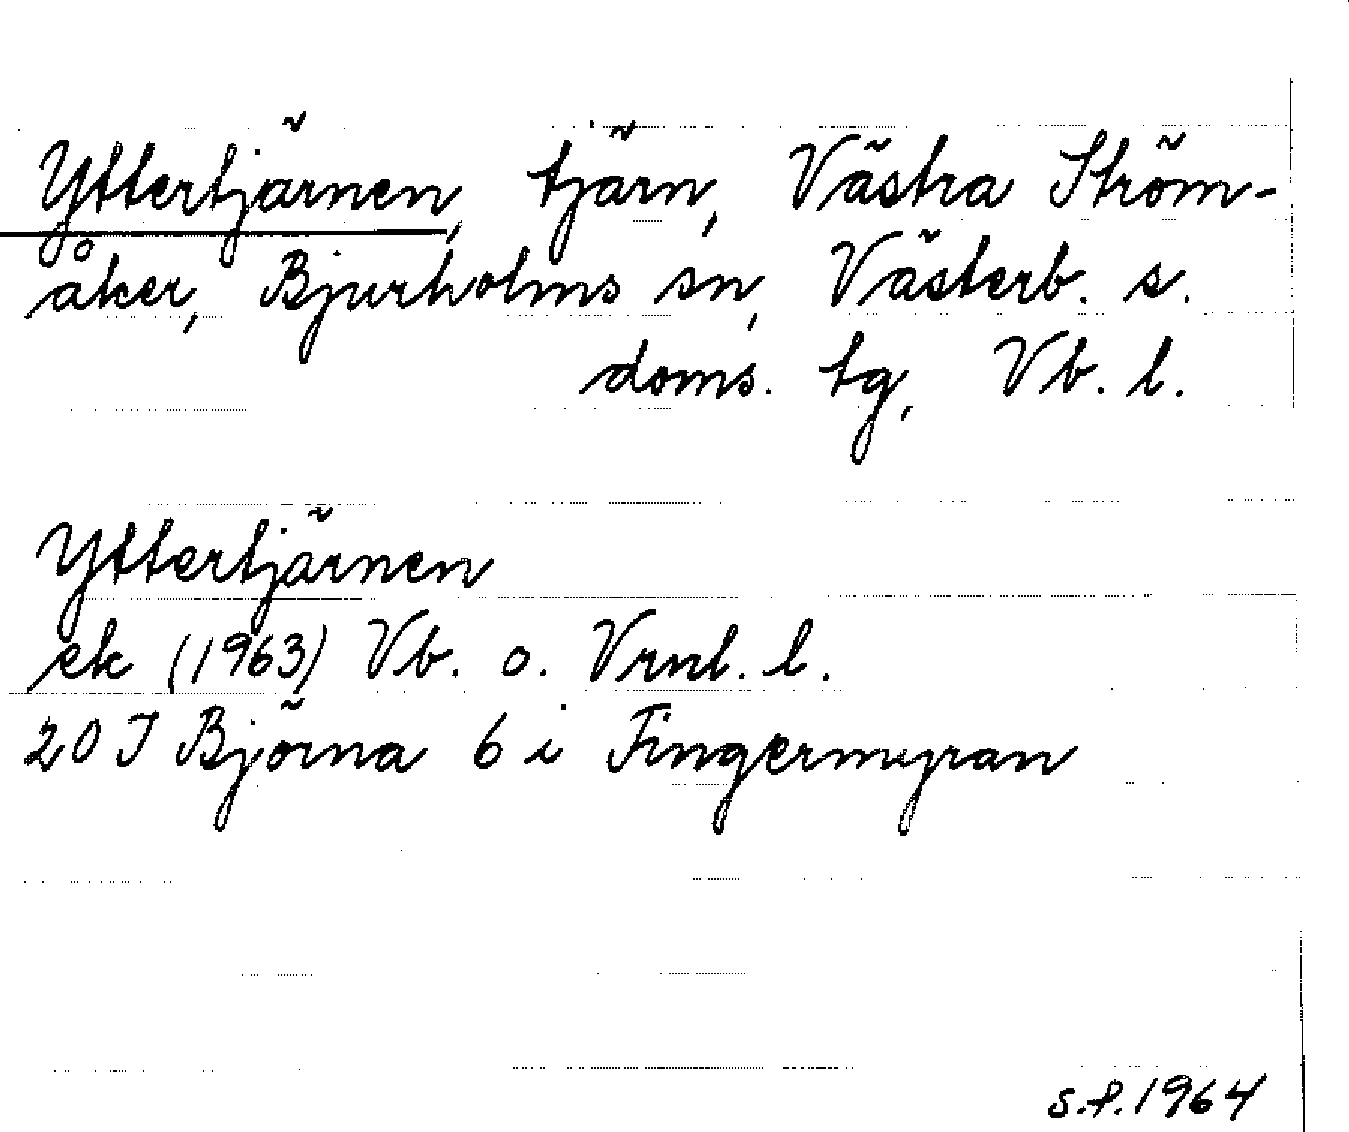 Yttertjärnen, tjärn, Västra Ström-
åker, Bjurholms sn, Västerb. s.
doms. tg, Vb. l.
Yttertjärnen
ek (1963) Vb. o. Vrnl. l.
20 J Björna 6 i Fingermyran
s.f. 1964